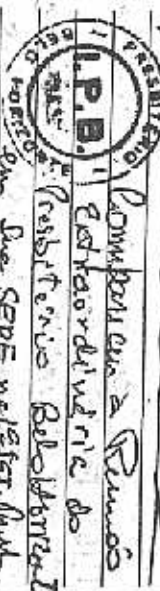 PRESBITÉRIO
BELO HORIZONTE
I.P.B.
Compareceu a Reunião
Extraordinária do
Presbiterio Belo Horizont
em Sua SEDE na